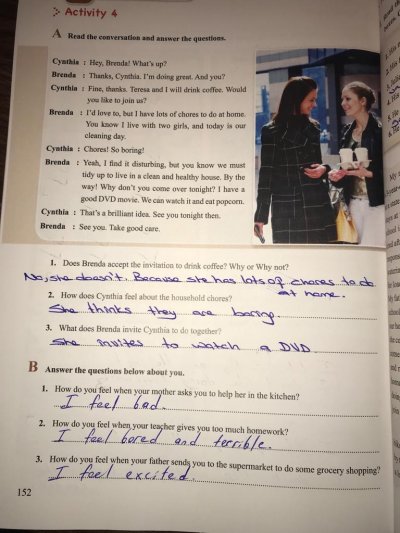 Activity 4
A Read the conversation and answer the questions.
Cynthia : Hey, Brenda! What's up?
Brenda : Thanks, Cynthia. I'm doing great. And you?
Cynthia : Fine, thanks. Teresa and I will drink coffee. Would
you like to join us?
Brenda : I'd love to, but I have lots of chores to do at home.
You know I live with two girls, and today is our
cleaning day.
Cynthia : Chores! So boring!
Brenda : Yeah, I find it disturbing, but you know we must
tidy up to live in a clean and healthy house. By the
way! Why don't you come over tonight? I have a
good DVD movie. We can watch it and eat popcorn.
Cynthia : That's a brilliant idea. See you tonight then.
Brenda : See you. Take good care.
1. Does Brenda accept the invitation to drink coffee? Why or Why not?
No, she doesn't. Because she has lots of chores to do
at home.
2. How does Cynthia feel about the household chores?
She thinks they are boring.
3. What does Brenda invite Cynthia to do together?
She invites to watch a DVD
B Answer the questions below about you.
1. How do you feel when your mother asks you to help her in the kitchen?
I feel bad.
2. How do you feel when your teacher gives you too much homework?
I feel bored and terrible.
3. How do you feel when your father sends you to the supermarket to do some grocery shopping?
I feel excited.
152